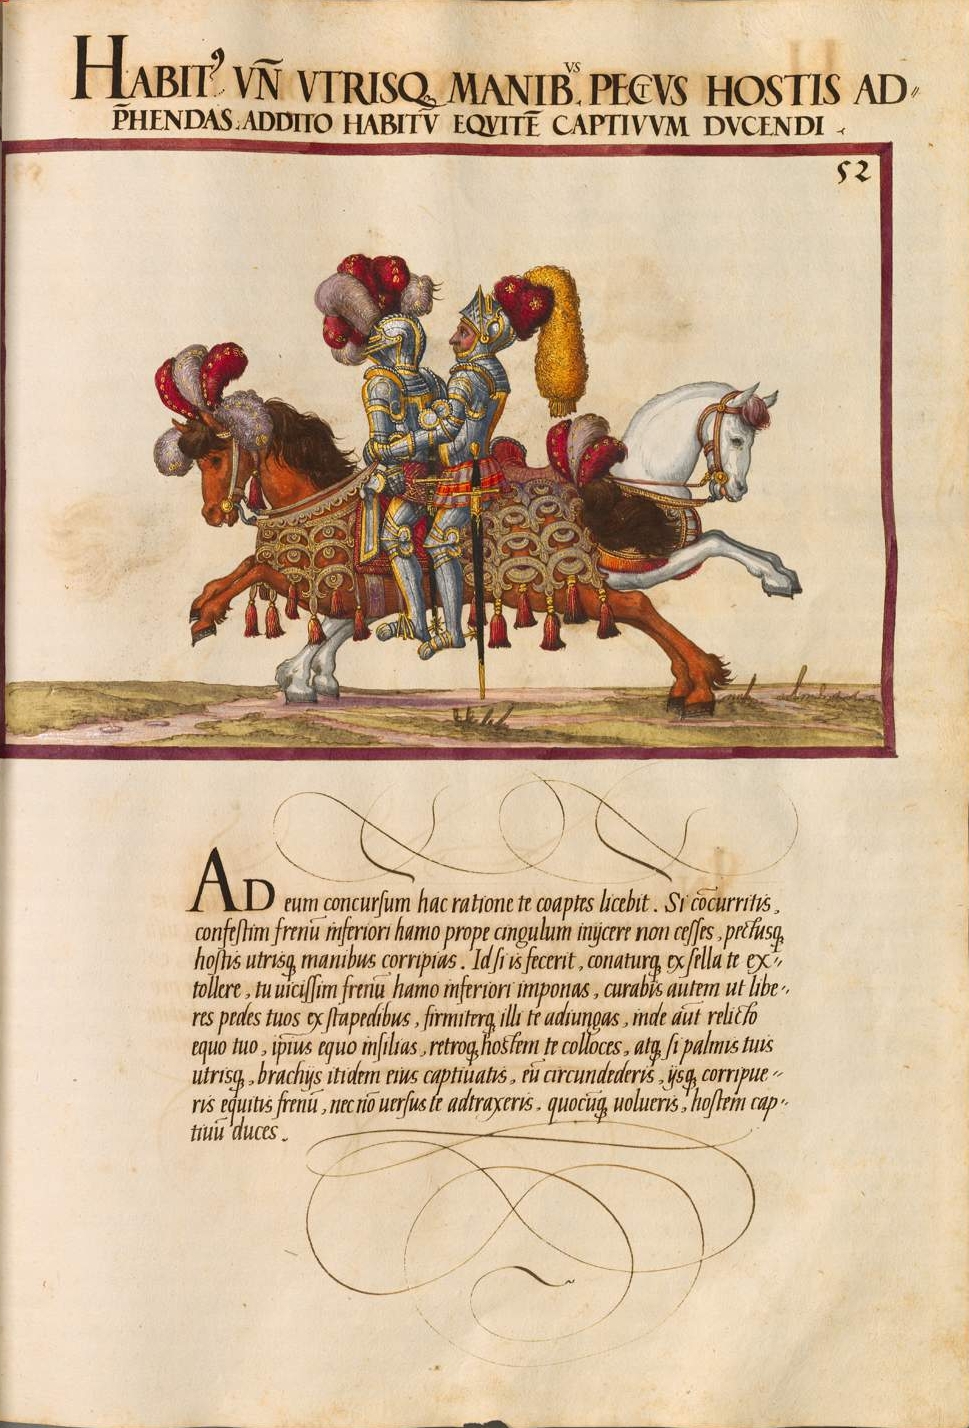 HABITꝰ VÑ VTRISQꝫ MANIBVS. PECTVS HOSTIS AD⸗
P̃HENDAS. ADDITO HABITV EQVITẼ CAPTIVVM DVCENDI.
52
AD eum concurſum hac ratione te coaptes licebit. Si cõcurritis,
confeſtim frenũ inferiori hamo prope cingulum inijcere non ceſſes, pectusqꝫ
hoſtis utrisqꝫ manibus corripias. Id ſi is fecerit, conaturqꝫ ex ſella te ex⸗
tollere, tu uiciſſim frenũ hamo inferiori imponas, curabis autem ut libe⸗
res pedes tuos ex ſtapedibus, firmiterqꝫ illi te adiungas, inde aũt relicto
equo tuo, ipſius equo inſilias, retroqꝫ hoſtem te colloces, atqꝫ ſi palmis tuis
utrisqꝫ, brachijs itidem eius captiuatis, eũ circundederis, ijsqꝫ corripue⸗
ris equitis frenũ, nec nõ uerſus te adtraxeris, quocũqꝫ uolueris, hoſtem cap⸗
tiuũ duces.